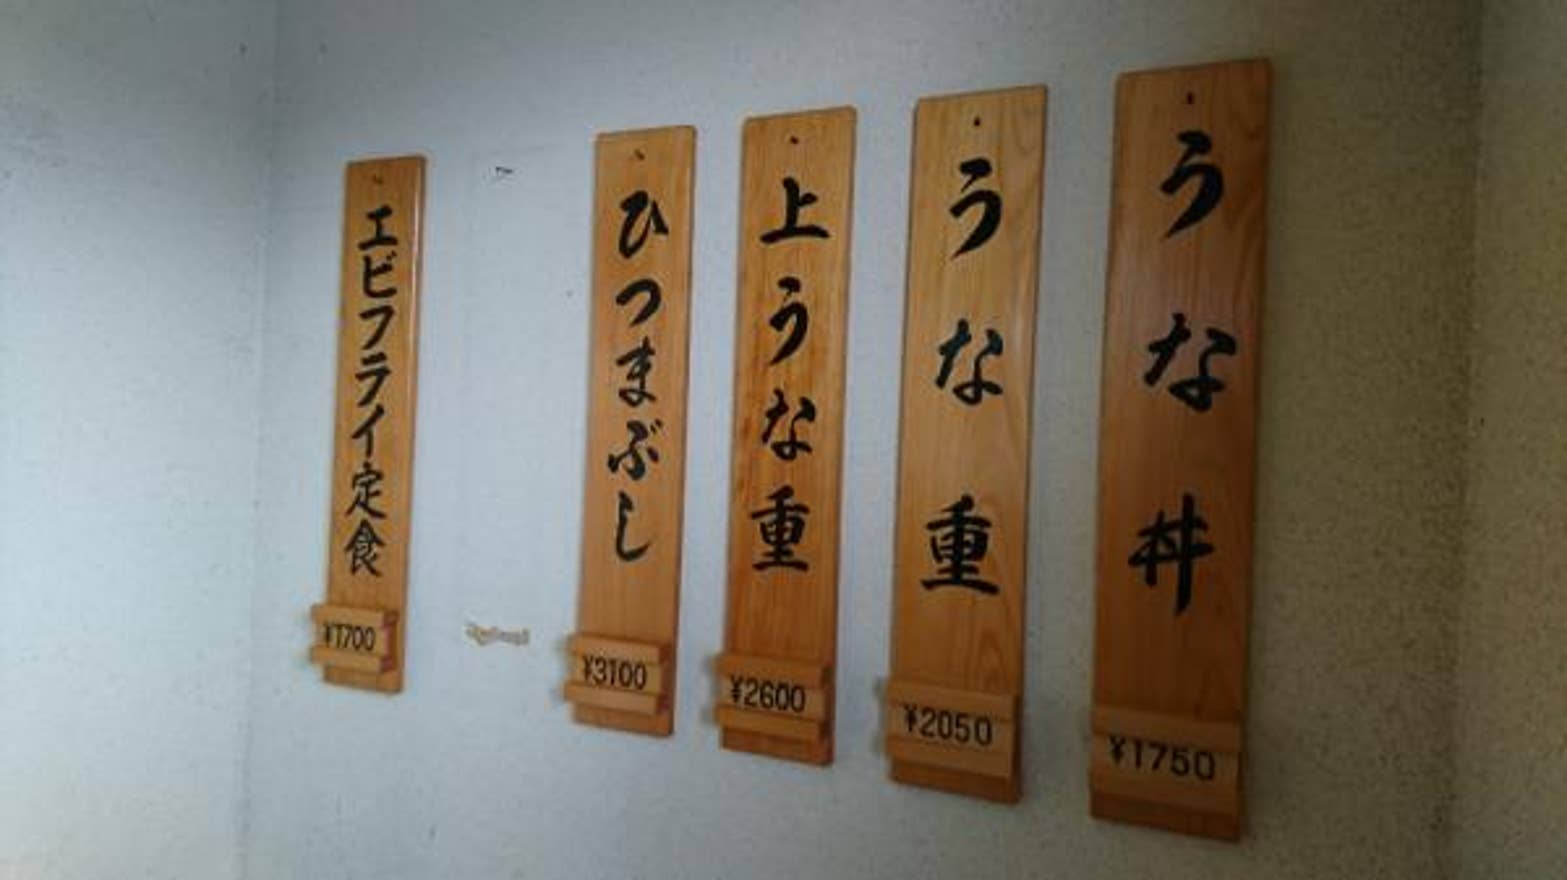 うな丼
¥1750
うな重
¥2050
上うな重
¥2600
ひつまぶし
¥3100
エビフライ定食
¥1700